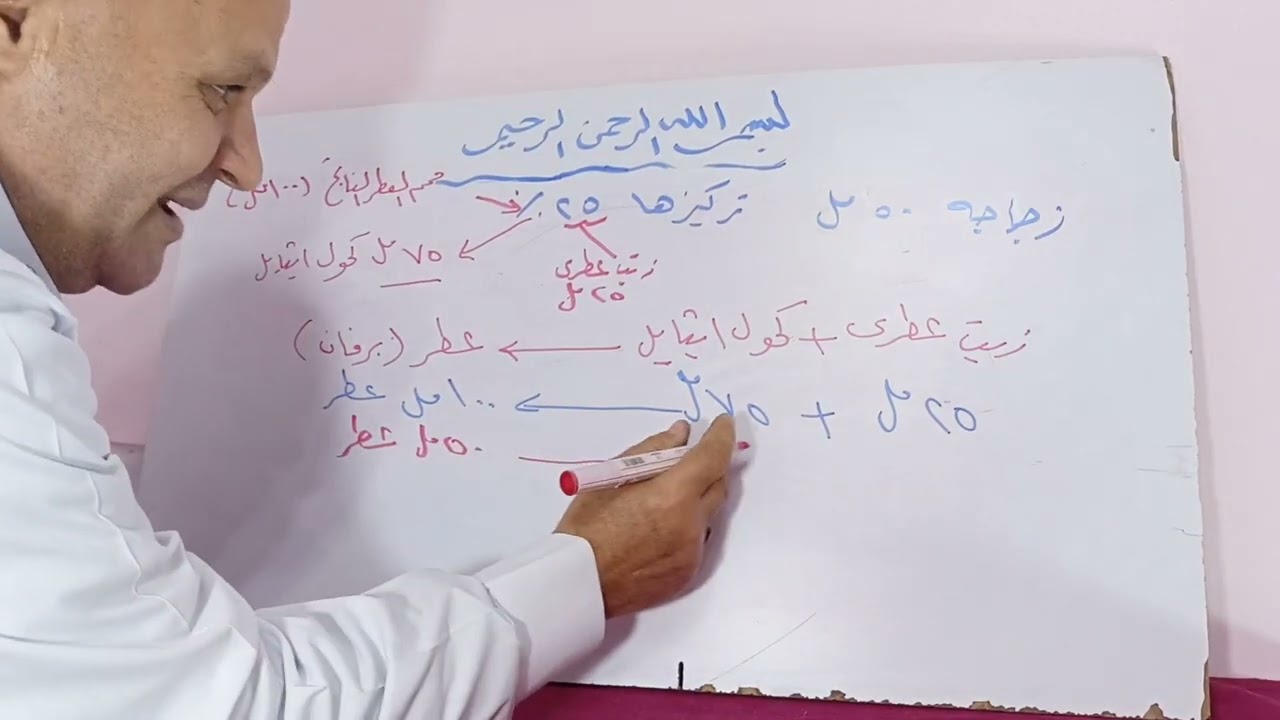 بسم الله الرحمن الرحيم
زجاجه ٥٠ مل تركيزها ٢٥ ٪
حجم العطر الناتج (١٠٠ مل)
٧٥ مل كحول ايثايل
زيت عطرى
٢٥ مل
زيت عطرى + كحول ايثايل ← عطر (برفان)
٢٥ مل + ٧٥ مل ← ١٠٠ مل عطر
٥٠ مل عطر